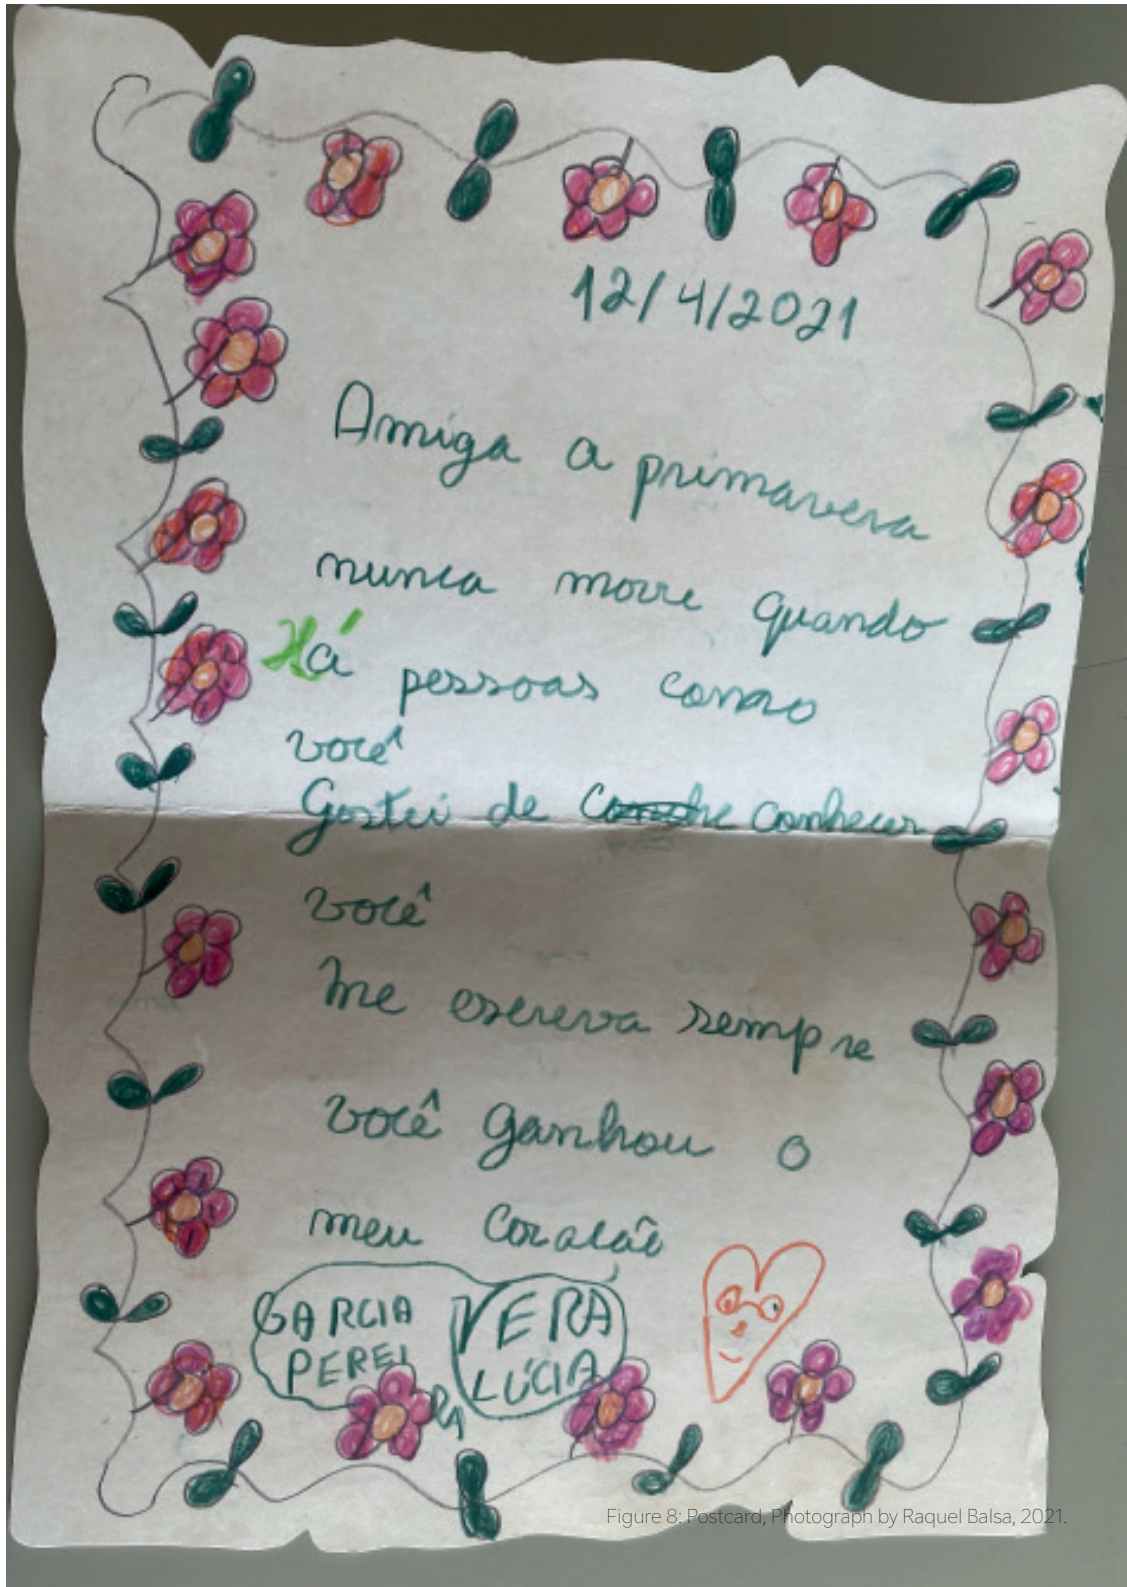 12/4/2021
Amiga a primavera
nunca morre quando
Há pessoas como
você
Gostei de conhecer
você
Me escreva sempre
você ganhou o
meu coração
GARCIA
PEREIRA
VERA
LÚCIA
Figure 8: Postcard, Photograph by Raquel Balsa, 2021.